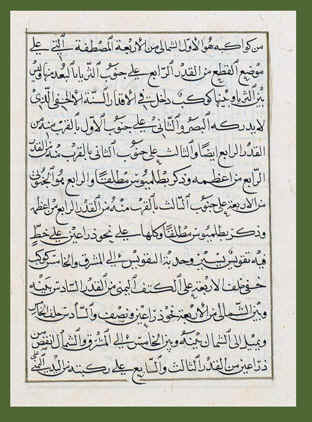 من كواكبه هو الاول الشمالي من الاربعة المصطفة التي على
موضع القطع من القدر الرابع على جنوب الثريا بالبعد منها وبين
نير الثريا وبينها كوكب داخل في الاقدار الستة الا خفي الذي
لا يدركه البصر والثاني على جنوب الاول بالقرب منه من
القدر الرابع ايضا والثالث على جنوب الثاني بالقرب منه من القدر
الرابع من اعظمه وذكر بطلميوس مطلقا والرابع هو الجنوبي
من الاربعة على جنوب الثالث بالقرب منه من القدر الرابع من اعظمه
وذكر بطلميوس مطلقا وكلها على نحو ذراعين على خط
فيه تقويس يسير وحدبة التقويس الى المشرق والخامس كوكب
خفي خلف الاربعة على الكتف اليمنى من القدر السادس بينه
وبين الشمالي من الاربعة نحو ذراعين ونصف والسادس خلف الخامس
ويميل الى الشمال بينه وبين الخامس الى المشرق والشمال انقص من
ذراعين من القدر الثالث والسابع على ركبته من اليد اليمنى